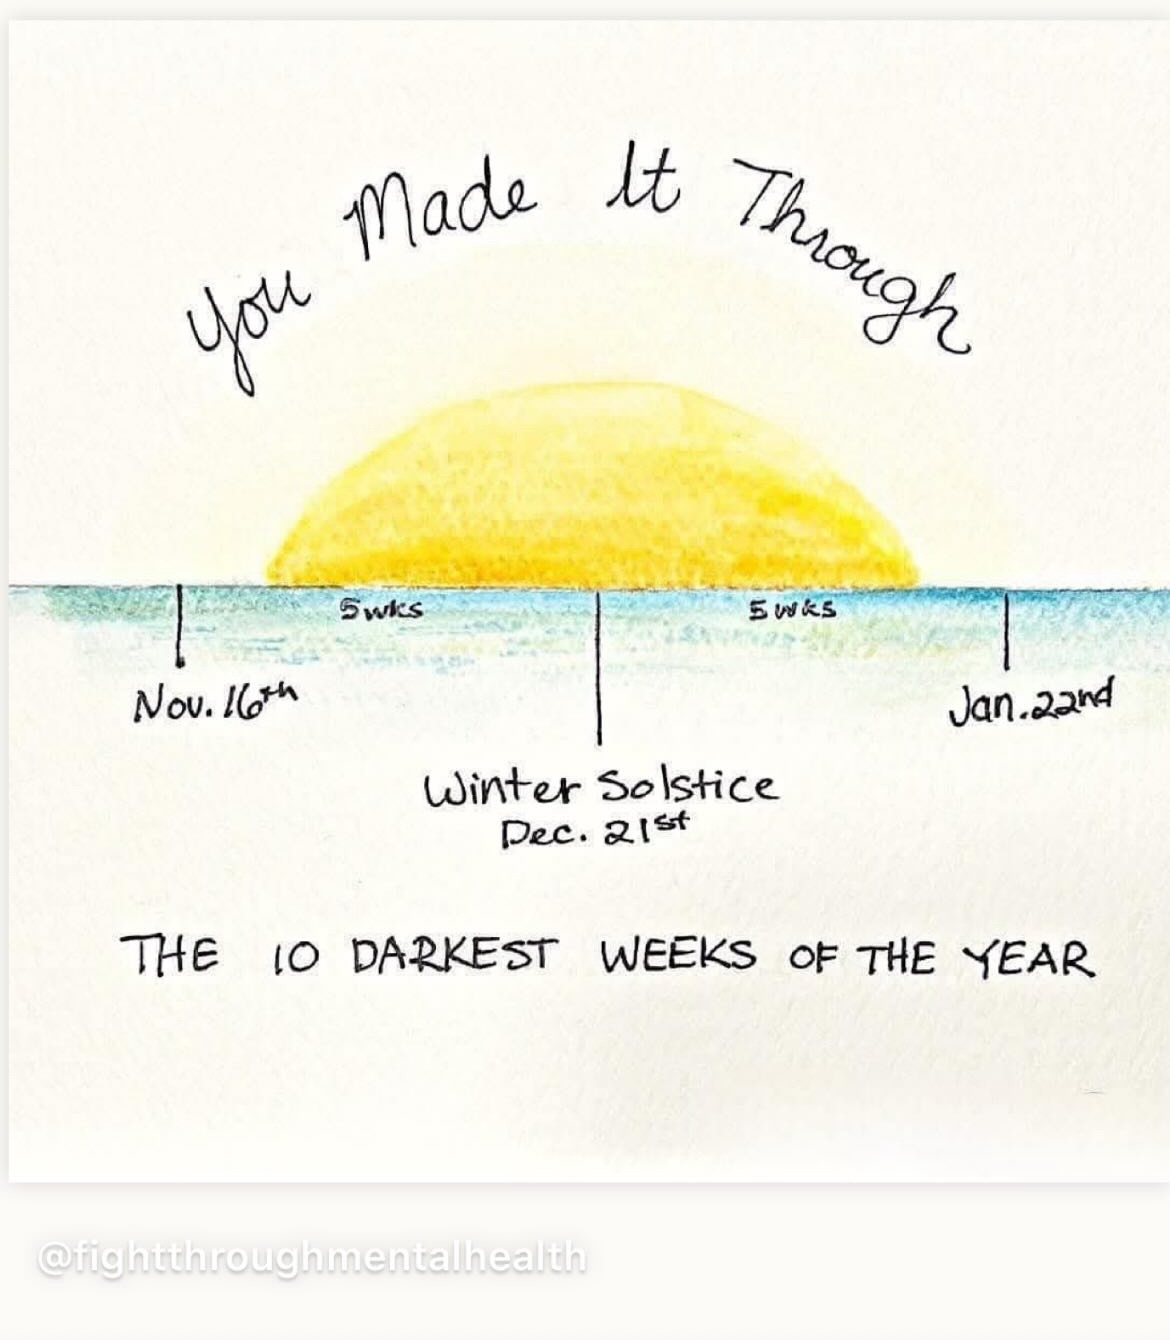 You Made It Through
5 wks
5 wks
Nov. 16th
Jan. 22nd
Winter Solstice
Dec. 21st
THE 10 DARKEST WEEKS OF THE YEAR
@fightthroughmentalhealth